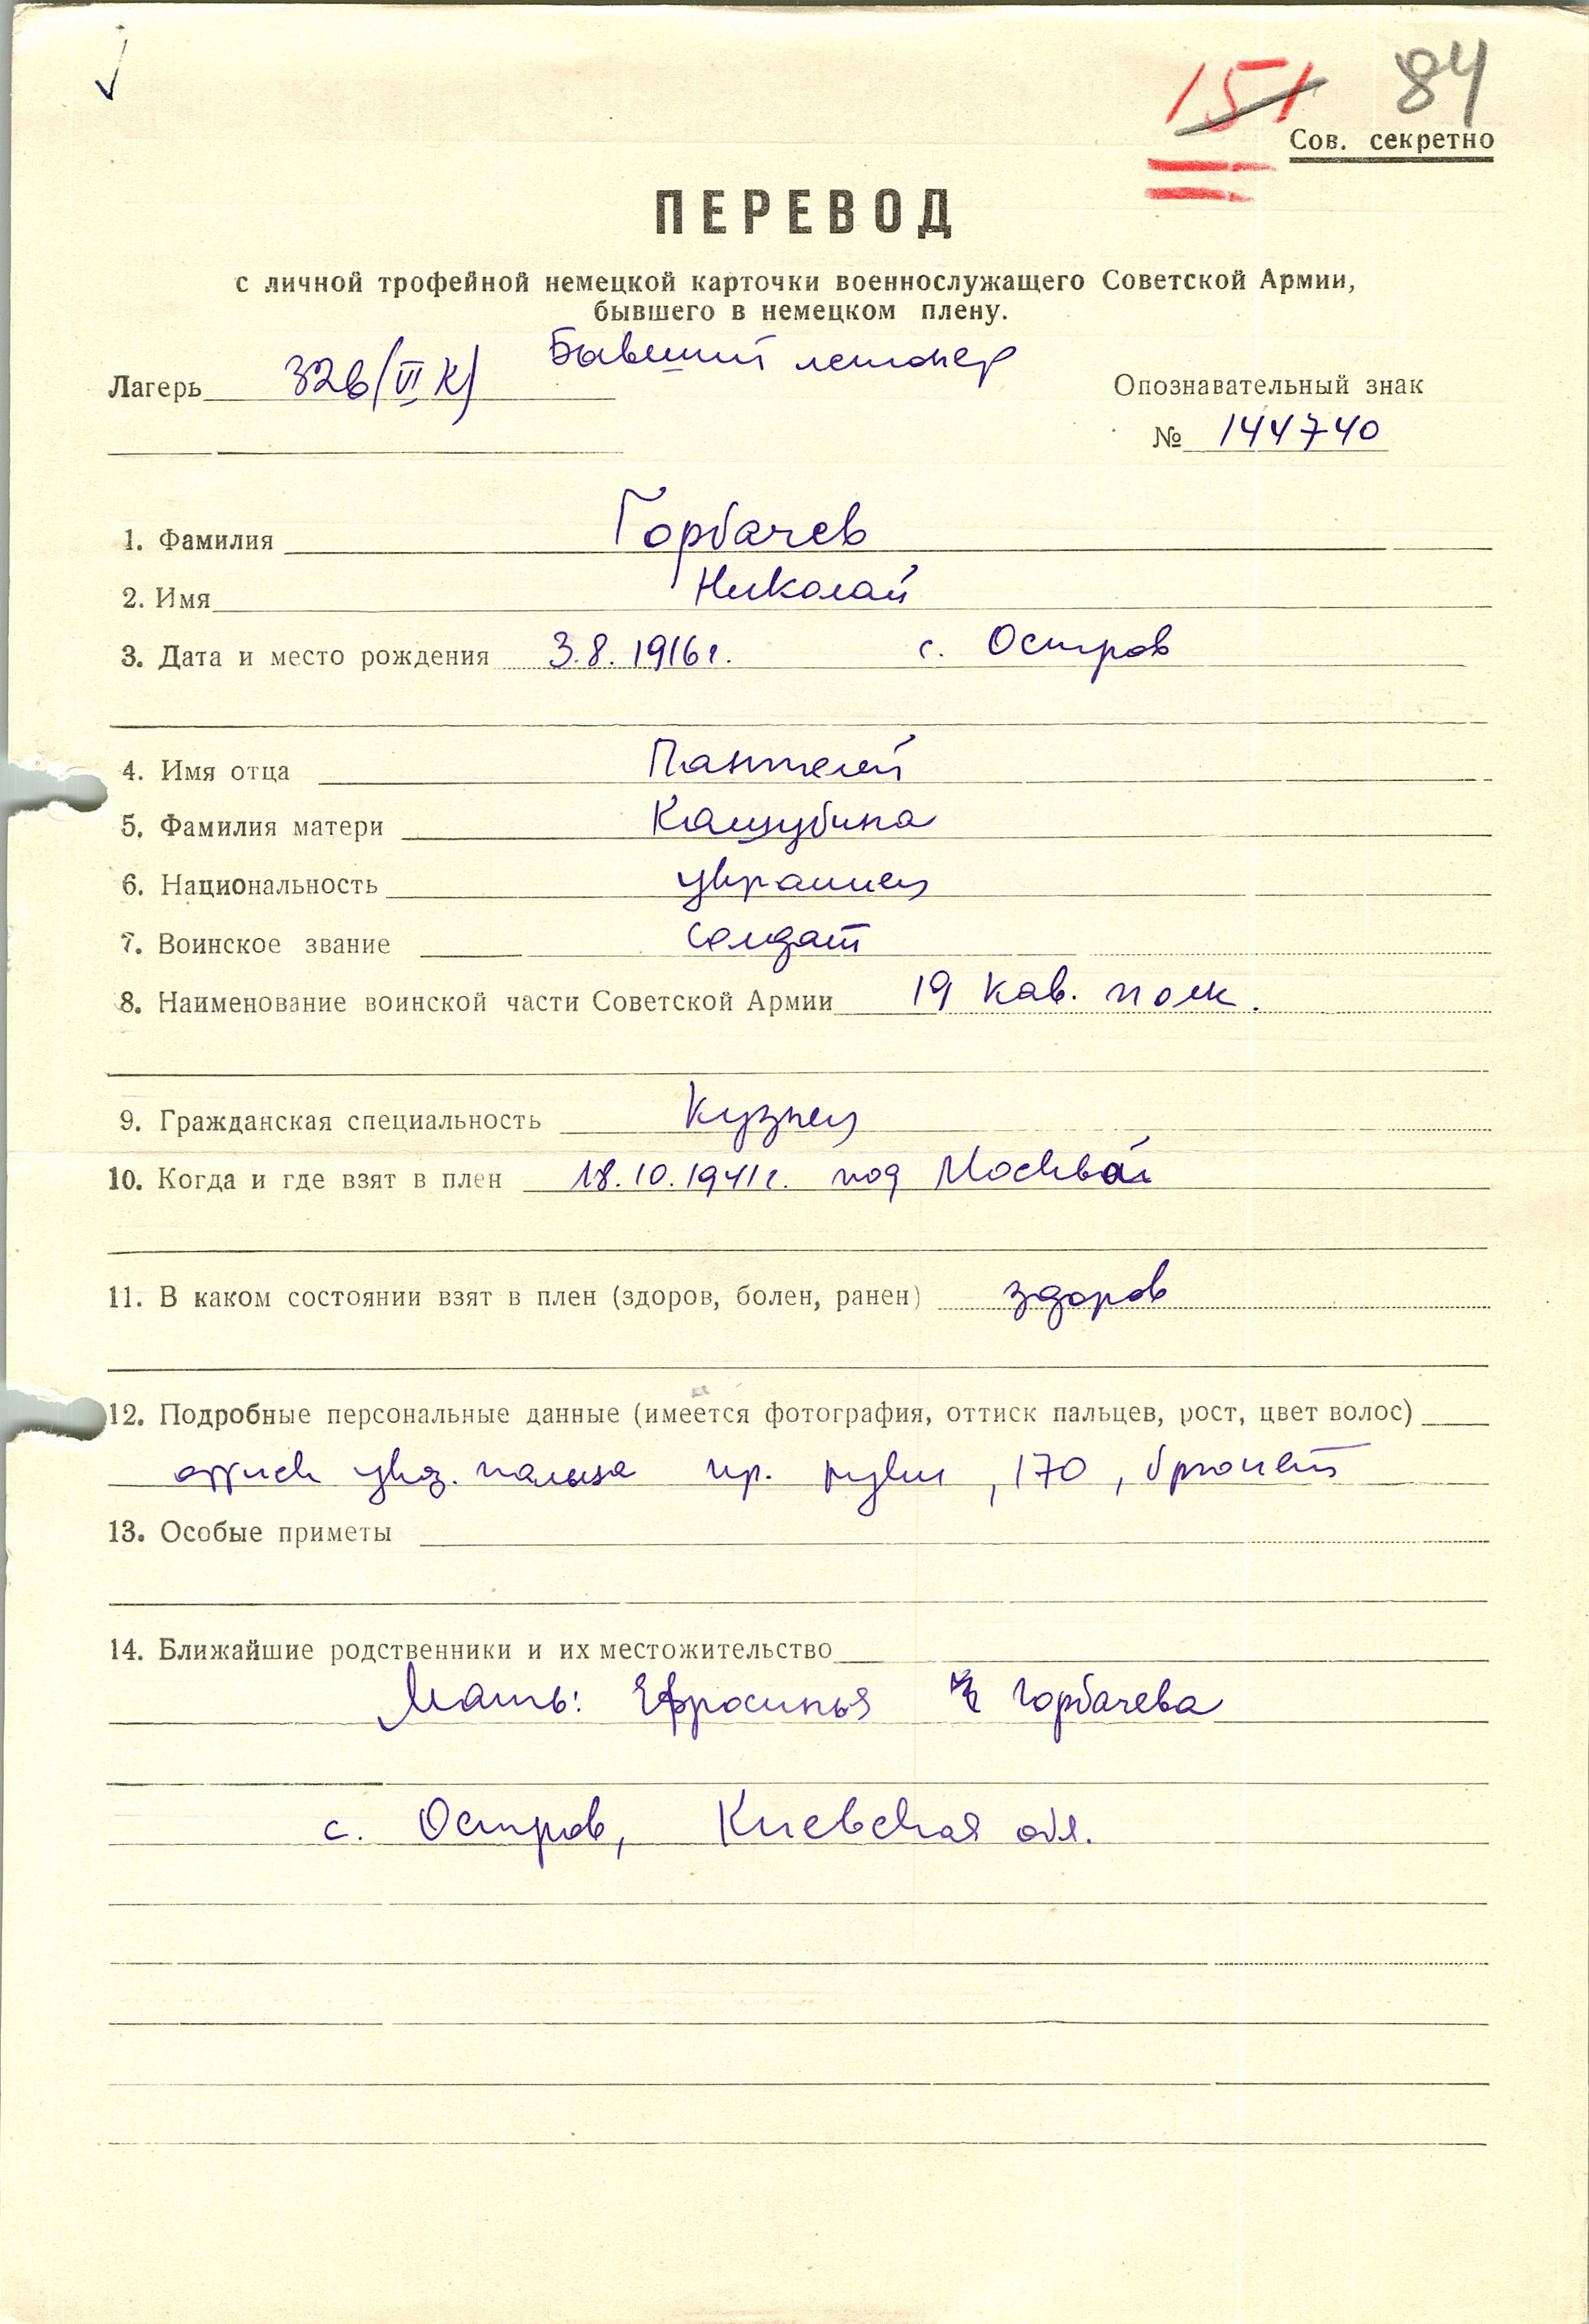 151 84
Сов. секретно
ПЕРЕВОД
с личной трофейной немецкой карточки военнослужащего Советской Армии,
бывшего в немецком плену.
Бывший легионер
Лагерь 326 (VI К) Опознавательный знак
№ 144740
1. Фамилия Горбачев
2. Имя Николай
3. Дата и место рождения 3.8.1916 г. с. Остров
4. Имя отца Пантелей
5. Фамилия матери
6. Национальность украинец
7. Воинское звание солдат
8. Наименование воинской части Советской Армии 19 кав. полк.
9. Гражданская специальность Кузнец
10. Когда и где взят в плен 18.10.1941 г. под Москвой
11. В каком состоянии взят в плен (здоров, болен, ранен) здоров
12. Подробные персональные данные (имеется фотография, оттиск пальцев, рост, цвет волос)
оттиск указ. пальца пр. руки, 170, брюнет
13. Особые приметы
14. Ближайшие родственники и их местожительство
Мать: Ефросинья Горбачева
с. Остров, Киевская обл.